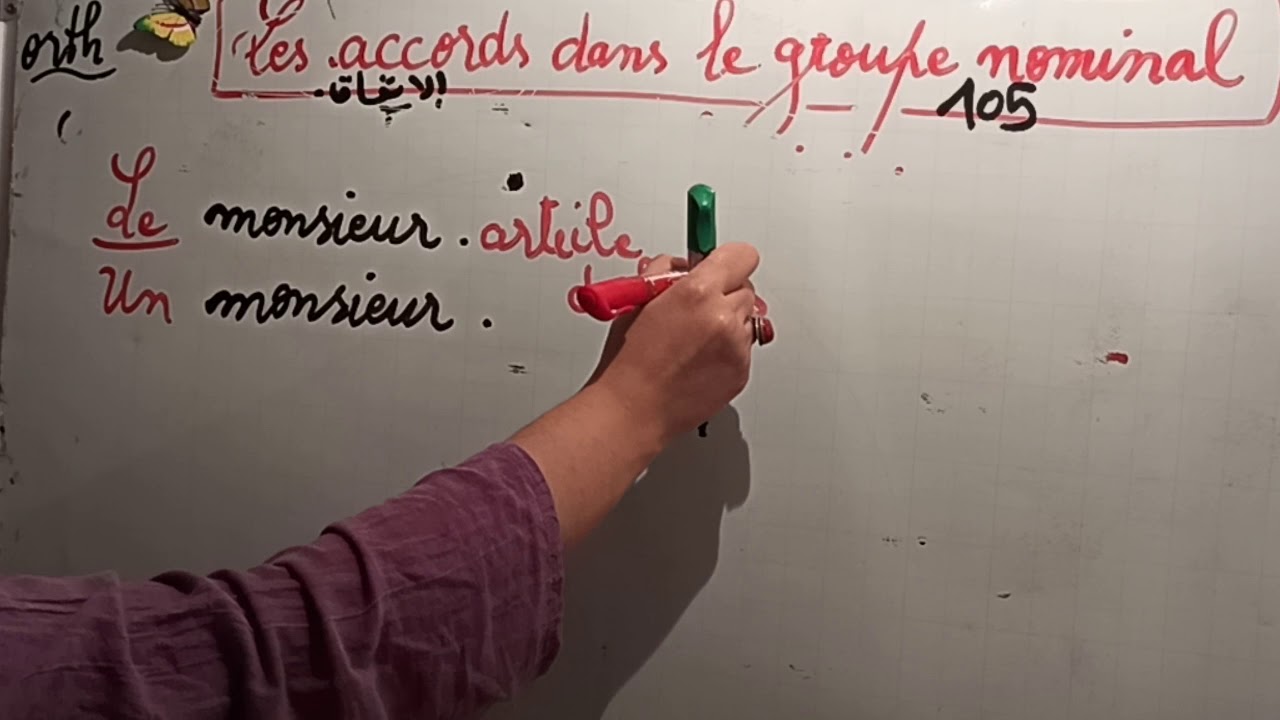 orth Les accords dans le groupe nominal
الاتفاق
105
Le monsieur. article
Un monsieur.